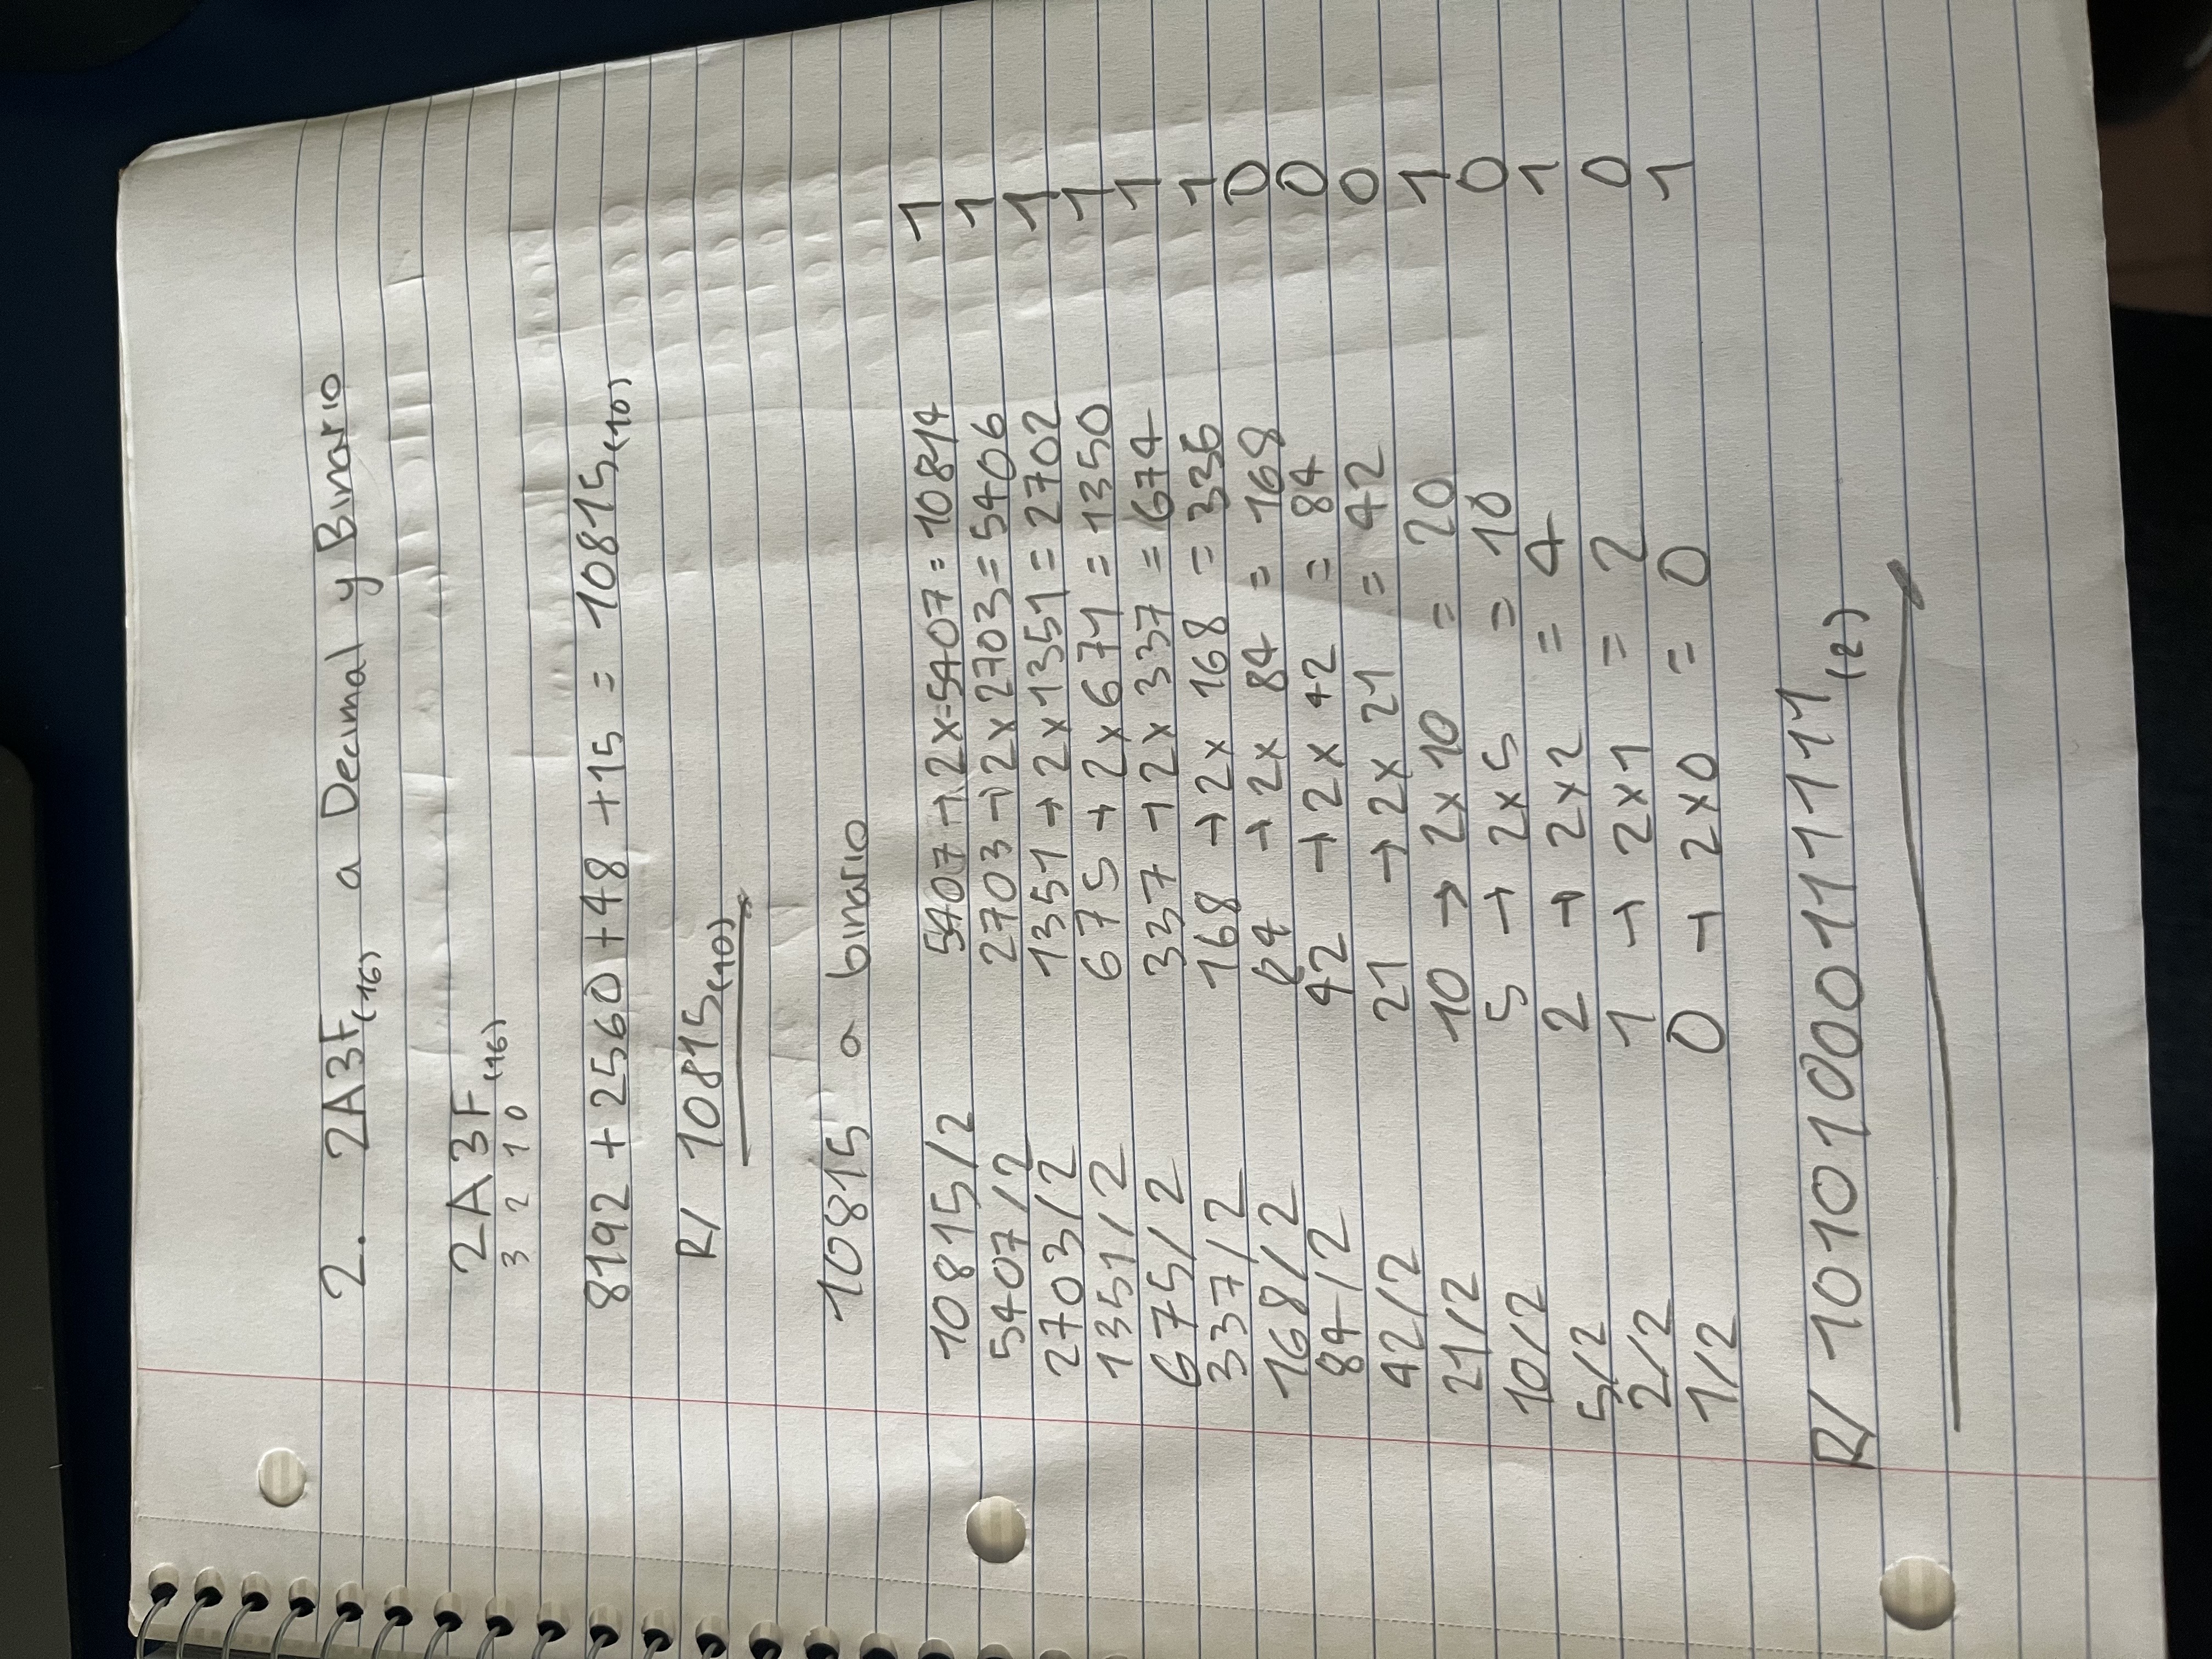 2. 2A3F(16) a Decimal y Binario
2A3F(16)
3 2 1 0
8192 + 2560 + 48 + 15 = 10815(10)
R/ 10815(10)
10815 a binario
10815/2 5407 → 2x5407 = 10814 1
5407/2 2703 → 2x2703 = 5406 1
2703/2 1351 → 2x1351 = 2702 1
1351/2 675 → 2x671 = 1350 1
675/2 337 → 2x 337 = 674 1
337/2 168 → 2x 168 = 336 1
168/2 84 → 2x 84 = 168 0
84/2 42 → 2x 42 = 84 0
42/2 21 → 2x 21 = 42 0
21/2 10 → 2x10 = 20 1
10/2 5 → 2x5 = 10 0
5/2 2 → 2x2 = 4 1
2/2 1 → 2x1 = 2 0
1/2 0 → 2x0 = 0 1
R/ 10101000111111(2)